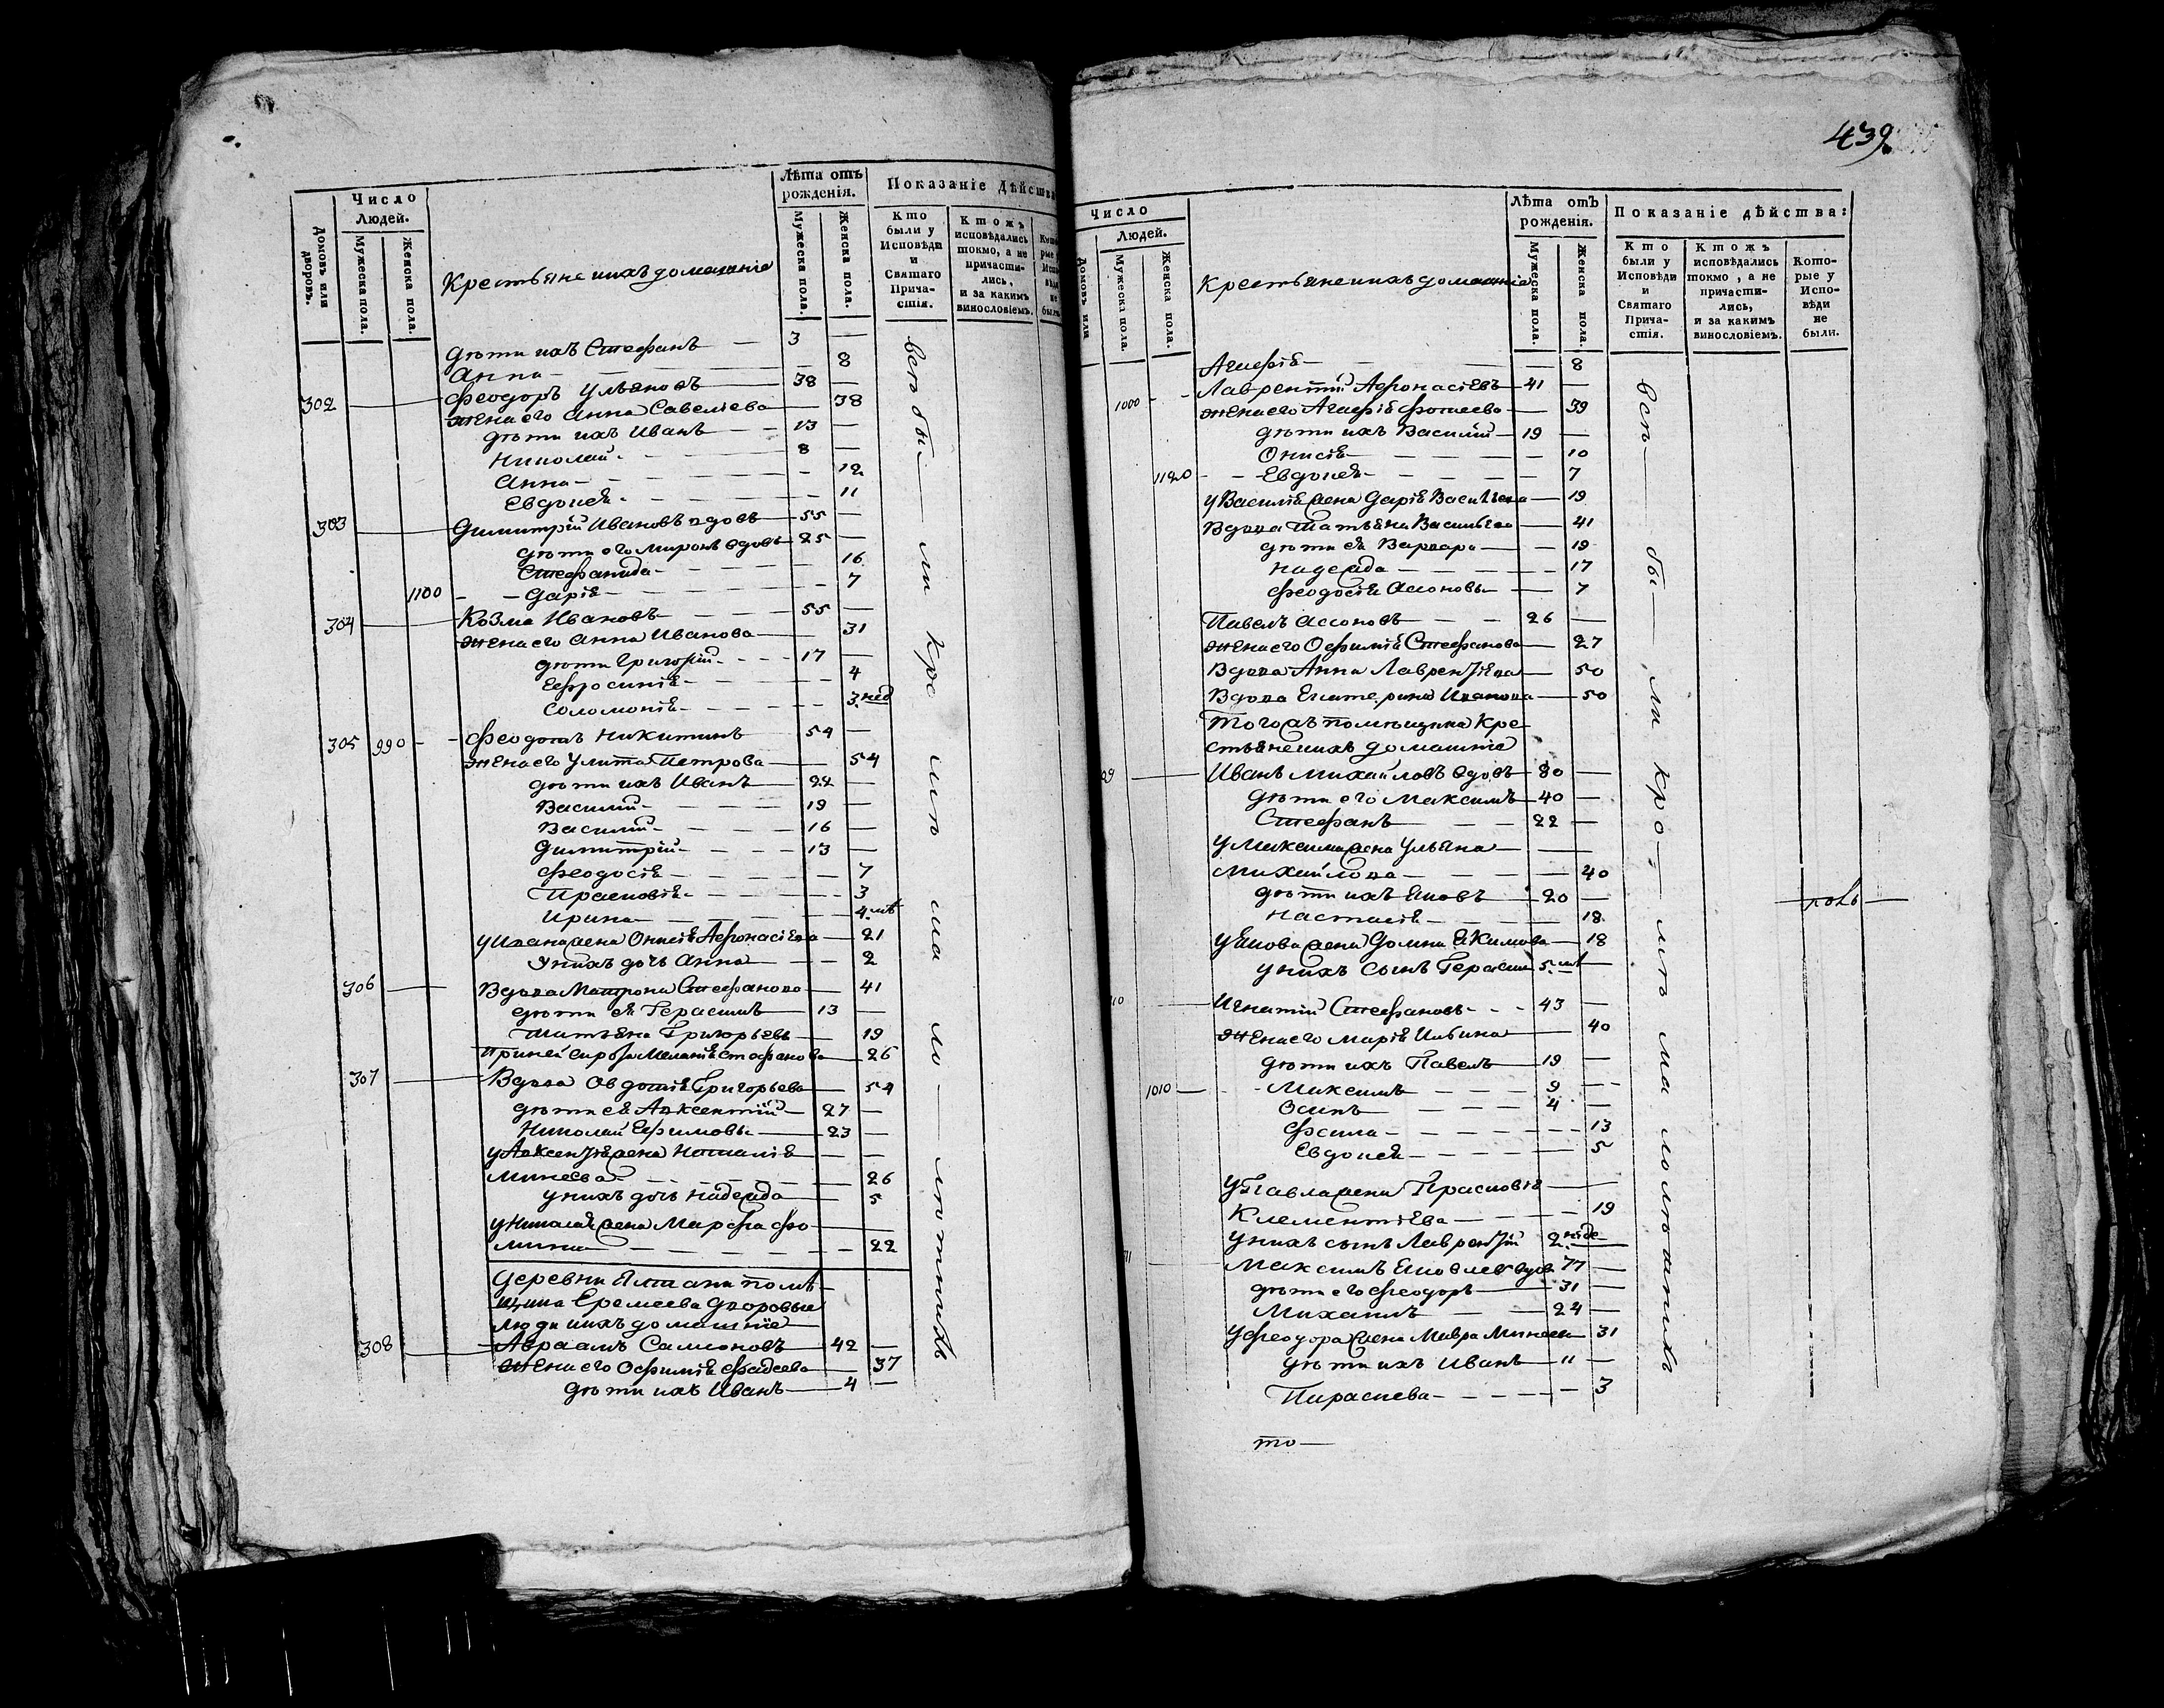 Число
Людей.
Домовъ или дворовъ.
Мужеска пола.
Женска пола.
Крестьяне ихъ домашніе
Лѣта отъ рожденія.
Мужеска пола.
Женска пола.
Показаніе Дѣйства
Кто были у Исповѣди и Святаго Причастія.
Ктожъ исповѣдались токмо, а не причастились, и за какимъ винословіемъ.
дѣти ихъ Стефанъ 3
Анна 8
302 Феодоръ Ульяновъ 38
жена его Анна Савеліева 38
дѣти ихъ Иванъ 13
Николай 8
Анна 12
Евдокея 11
303 Димитрій Ивановъ вдовъ 55
дѣти его Миронъ вдовъ 25
Стефанида 16
1100 Дарія 7
304 Козма Ивановъ 55
жена его Анна Иванова 31
дѣти Григорій 17
Ефросинія 4
Соломонія 3 нед
305 990 Феодотъ Никитинъ 54
жена его Улита Петрова 54
дѣти ихъ Иванъ 22
Василій 19
Василій 16
Димитрій 13
Феодосія 7
Прасковія 3
Ирина 4 мѣ
у Ивана жена Онисія Афонасіева 21
у нихъ дочь Анна 2
306 Вдова Матрона Стефанова 41
дѣти ея Герасимъ 13
Татьяна Григорьевы 19
при ней сирота Меланія Стефанова 26
307 Вдова Овдотія Григорьева 54
дѣти ея Авксентій 27
Николай Ефимовы 23
у Авксентія жена Наталія
Минеева 26
у нихъ дочь Надежда 5
у Николая жена Марфа Фо-
мина 22
Деревни Ялтани помѣ-
щика Еремеева дворовые
люди ихъ домашніе
308 Авраамъ Самсоновъ 42
жена его Офимія Фадеева 37
дѣти ихъ Иванъ 4
всѣ бы ли Кро мѣ ма ло лѣтнихъ
439
Число
Людей.
Домовъ или
Мужеска пола.
Женска пола.
Крестьяне ихъ домашніе
Лѣта отъ рожденія.
Мужеска пола.
Женска пола.
Показаніе дѣйства:
Кто были у Исповѣди и Святаго Причастія.
Ктожъ исповѣдались токмо, а не причастились, и за какимъ винословіемъ.
Которые у Исповѣди не были.
Агафія 8
1000 Лаврентій Афонасіевъ 41
жена его Агафія Фотеева 39
дѣти ихъ Василій 19
Онисія 10
1120 Евдокея 7
у Василія жена Дарія Василіева 19
Вдова Татьяна Васильева 41
дѣти ея Варвара 19
Надежда 17
Феодосія Ассоновы 7
Павелъ Ассоновъ 26
жена его Офимія Стефанова 27
Вдова Анна Лаврентіева 50
Вдова Екатерина Иванова 50
Тогожъ помѣщика Кре-
стьяне ихъ домашніе
09 Иванъ Михайловъ вдовъ 80
дѣти его Максимъ 40
Стефанъ 22
у Максима жена Ульяна
Михайлова 40
дѣти ихъ Яковъ 20
Настасія 18
у Якова жена Домна Якимова 18
у нихъ сынъ Герасимъ 5 мѣ
10 Игнатій Стефановъ 43
жена его Марія Ильина 40
дѣти ихъ Павелъ 19
1010 Максимъ 9
Осипъ 4
Фекла 13
Евдокея 5
у Павла жена Прасковія
Клементіева 19
у нихъ сынъ Лаврентій 2 нѣде
11 Максимъ Яковлевъ вдов 77
дѣти его Феодоръ 31
Михаилъ 24
у Феодора жена Мавра Минеева 31
дѣти ихъ Иванъ 11
Параскева 3
всѣ бы ли Кро мѣ ма лолѣтнихъ
то